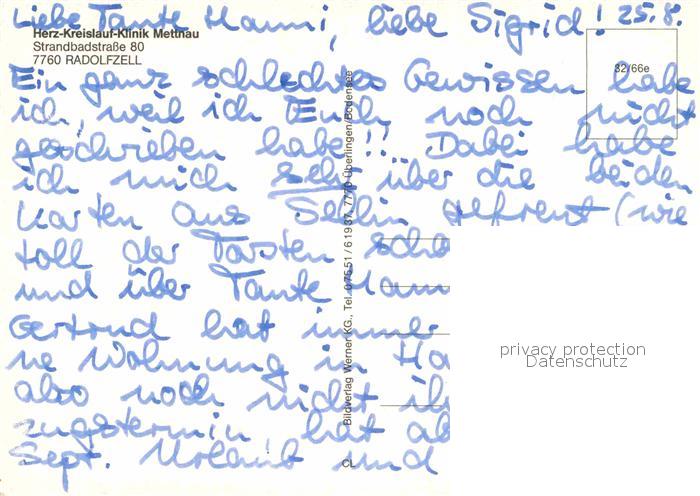 Liebe Tante Hanni, liebe Sigrid! 25.8.
Herz-Kreislauf-Klinik Mettnau
Strandbadstraße 80
7760 RADOLFZELL
32/66e
Ein ganz schlechtes Gewissen habe
ich, weil ich Euch noch nicht
geschrieben habe!! Dabei habe
ich mich sehr über die beiden
Karten aus gefreut (wie
toll der Torsten
und über Tante
Gertrud hat immer
ne Wohnung in
also noch nicht
zugstermin hat
Sept. Urlaub und
Bildverlag Werner KG., Tel. 07551/61937, 7770 Überlingen/Bodensee
CL
privacy protection
Datenschutz